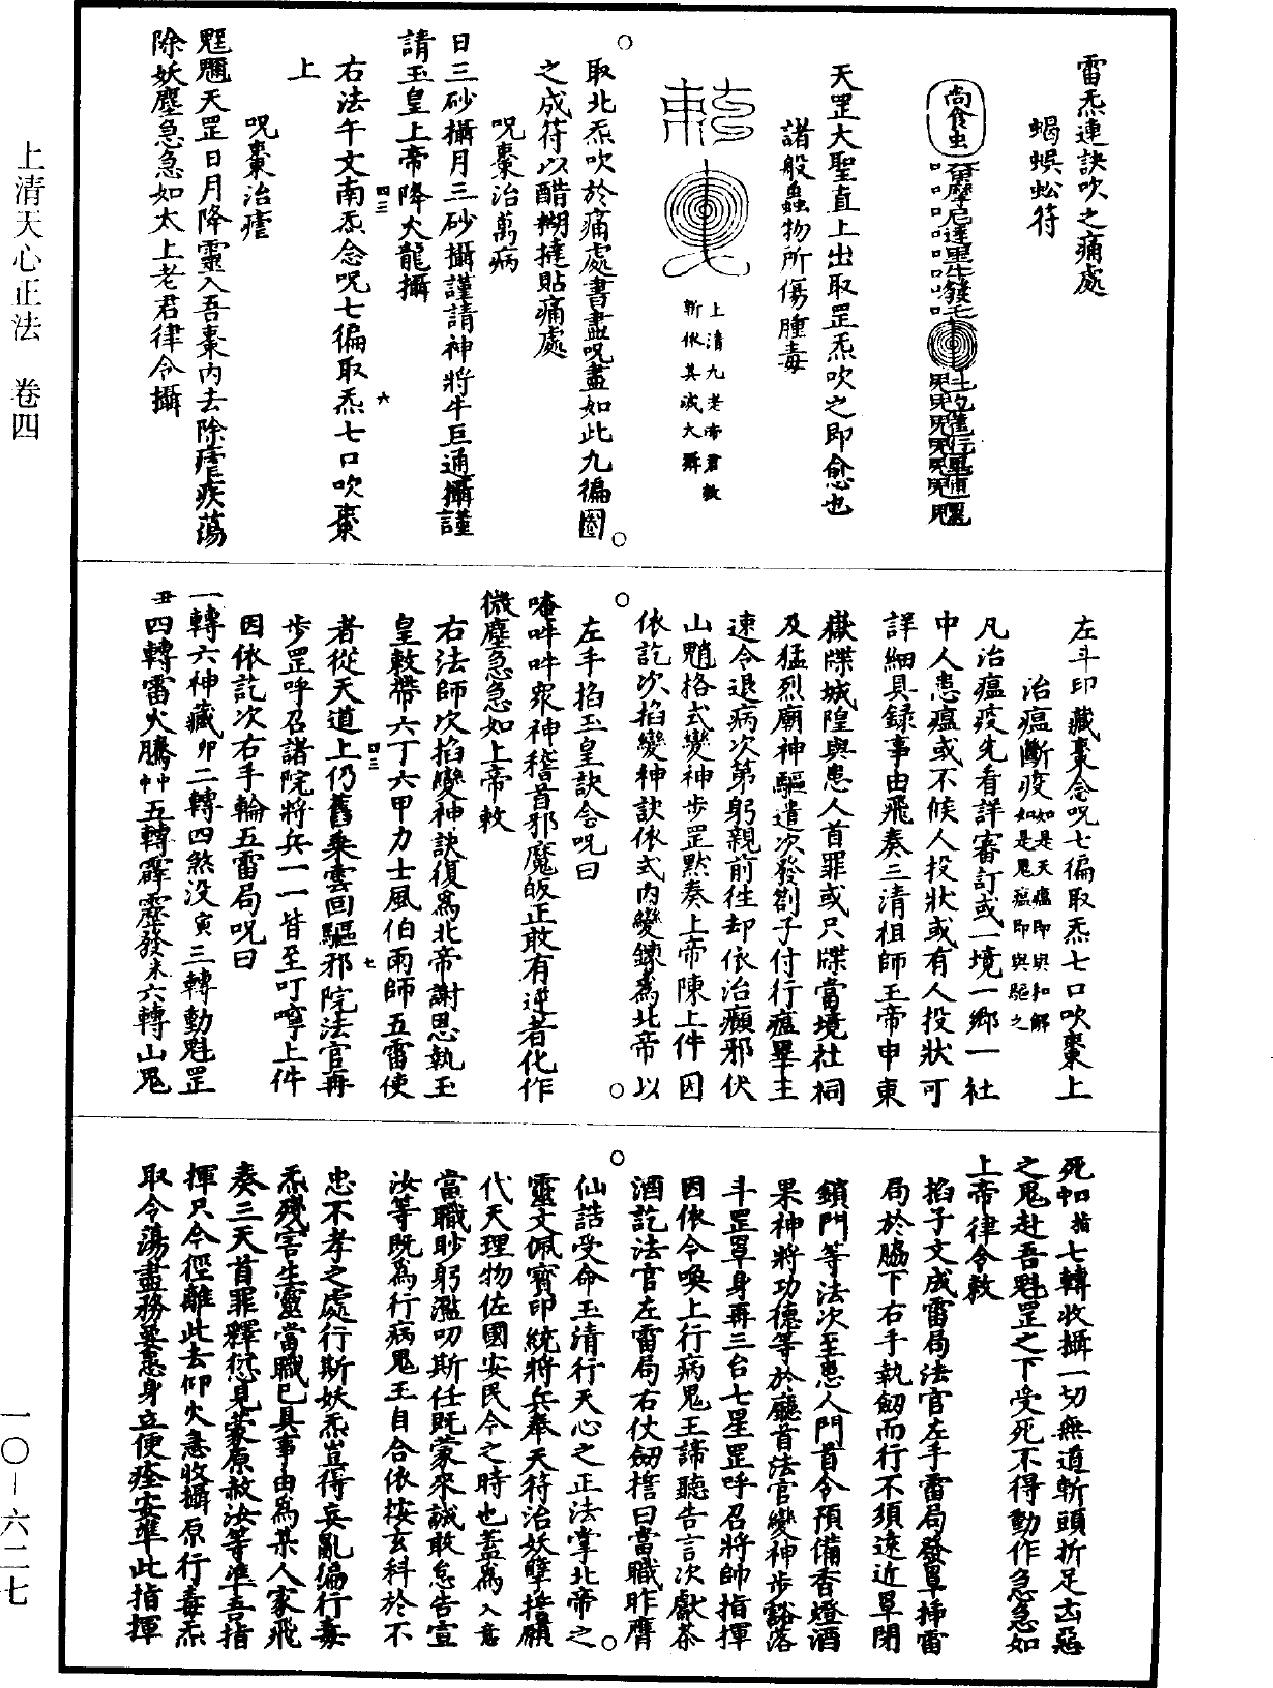 雷炁連訣吹之痛處
蝎蜈蚣符
天罡大聖直上出取罡炁吹之即愈也
諸般蟲物所傷腫毒
上清九老帝君敕
取北炁吹於痛處書畫呪畫如此九徧圈
之成符以醋糊撻貼痛處
呪棗治萬病
日三砂攝月三砂攝謹請神將牛巨通攝謹
請玉皇上帝降大龍攝
右法午文南炁念呪七徧取炁七口吹棗
上
呪棗治瘧
魁魓天罡日月降靈入吾棗內去除瘧疾蕩
除妖塵急急如太上老君律令攝
左斗印藏棗念呪七徧取炁七口吹棗上
治瘟斷疫如是天瘟即與和解
如是鬼瘟即與驅之
凡治瘟疫先看詳審訂或一境一鄉一社
中人患瘟或不候人投狀或有人投狀可
詳細具録事由飛奏三清祖師玉帝申東
嶽牒城隍與患人首罪或只牒當境社祠
及猛烈廟神驅遣次發劄子付行瘟畢主
速令退病次第躬親前往却依治癲邪伏
山魈格式變神步罡默奏上帝陳上件因
依訖次掐變神訣依式內變鍊為北帝以
左手掐玉皇訣念呪曰
唵吽吽眾神稽首邪魔皈正敢有逆者化作
微塵急急如上帝敕
右法師次掐變神訣復為北帝謝恩執玉
皇敕帶六丁六甲力士風伯雨師五雷使
者從天道上仍舊乘雲回驅邪院法官再
步罡呼召諸院將兵一一皆至叮嚀上件
因依訖次右手輪五雷局呪曰
一轉六神藏卯二轉四煞没寅三轉動魁罡
丑四轉雷火騰艸五轉霹靂發未六轉山鬼
死中指七轉收攝一切無道斬頭折足凶惡
之鬼赴吾魁罡之下受死不得動作急急如
上帝律令敕
掐子文成雷局法官左手雷局發罩掃雷
局於腸下右手執劒而行不須遠近罩閉
鎖門等法次至患人門首令預備香燈酒
果神將功德等於廳首法官變神步豁落
斗罡罩身再三台七星罡呼召將帥指揮
因依令喚上行病鬼王諦聽告言次獻茶
酒訖法官左雷局右仗劒誥曰當職昨膺
仙誥受命玉清行天心之正法掌北帝之
靈文佩寶印統將兵奉天符治妖孽誓願
代天理物佐國安民今之時也蓋為入意
當職眇躬濫叨斯任既蒙來誠敢怠告宣
汝等既為行病鬼王自合依按玄科於不
忠不孝之處行斯妖炁豈得妄亂徧行毒
炁殘害生靈當職已具事由為某人家飛
奏三天首罪釋愆見蒙原赦汝等準吾指
揮只今徑離此去仰火急收攝原行毒炁
取令蕩盡務要患身立便痊安準此指揮
上清天心正法　卷四
一〇－六二七